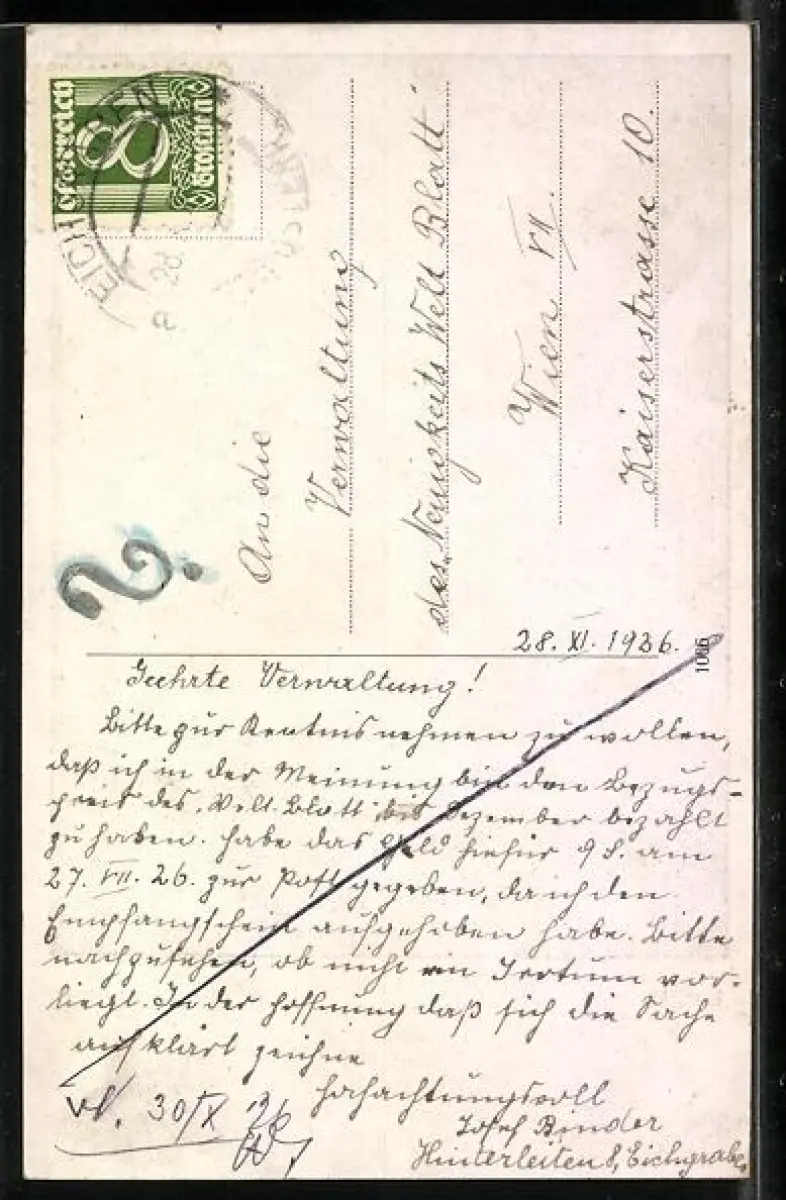 Österreich
8
Groschen
EICHGRABEN
An die
Verwaltung
des „Neuigkeits Welt Blatt"
Wien VII.
Kaiserstrasse 10.
?
1066
28. XI. 1926.
Geehrte Verwaltung!
Bitte zur Kentnis nehmen zu wollen,
daß ich in der Meinung bin den Bezugs-
preis des „Welt Blatt" bis Dezember bezahlt
zu haben. Habe das Geld hiefür 9 S. am
27. VII. 26. zur Post gegeben, da ich den
Empfangschein aufgehoben habe. Bitte
nachzusehen, ob nicht ein Irrtum vor-
liegt. In der Hoffnung daß sich die Sache
aufklärt zeichne
Hochachtungsvoll
Josef Binder
Hinterleiten 8, Eichgraben
30/X 26